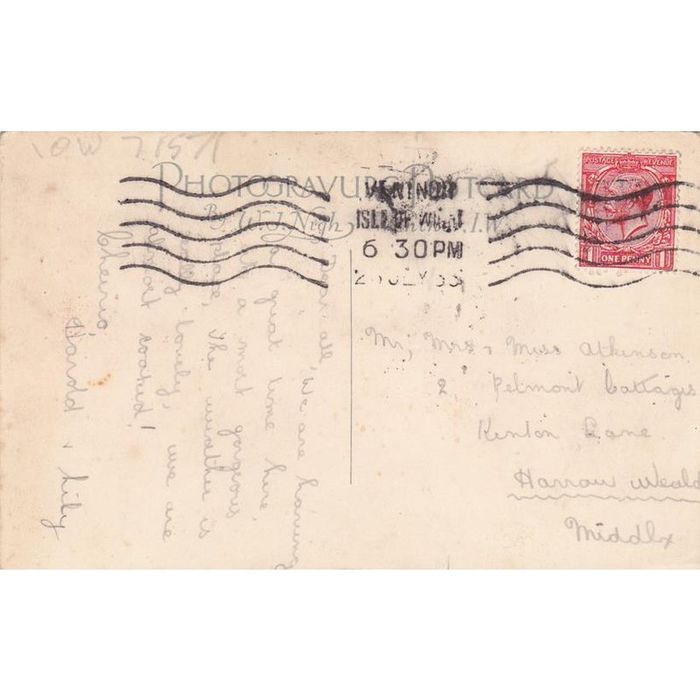 IOW 71571
PHOTOGRAVURE POSTCARD
By W.J. Nigh
VENTNOR
ISLE OF WIGHT
6 30PM
JLY 33
POSTAGE REVENUE
ONE PENNY
Dear all, We are having
a great time here,
it is a most gorgeous
place, The weather is
very lovely, we are
almost cooked!
Cheerio
Harold & Lily
Mr, Mrs & Miss Atkinson
2 Pelmont Cottages
Kenton Lane
Harrow Weald
Middlx